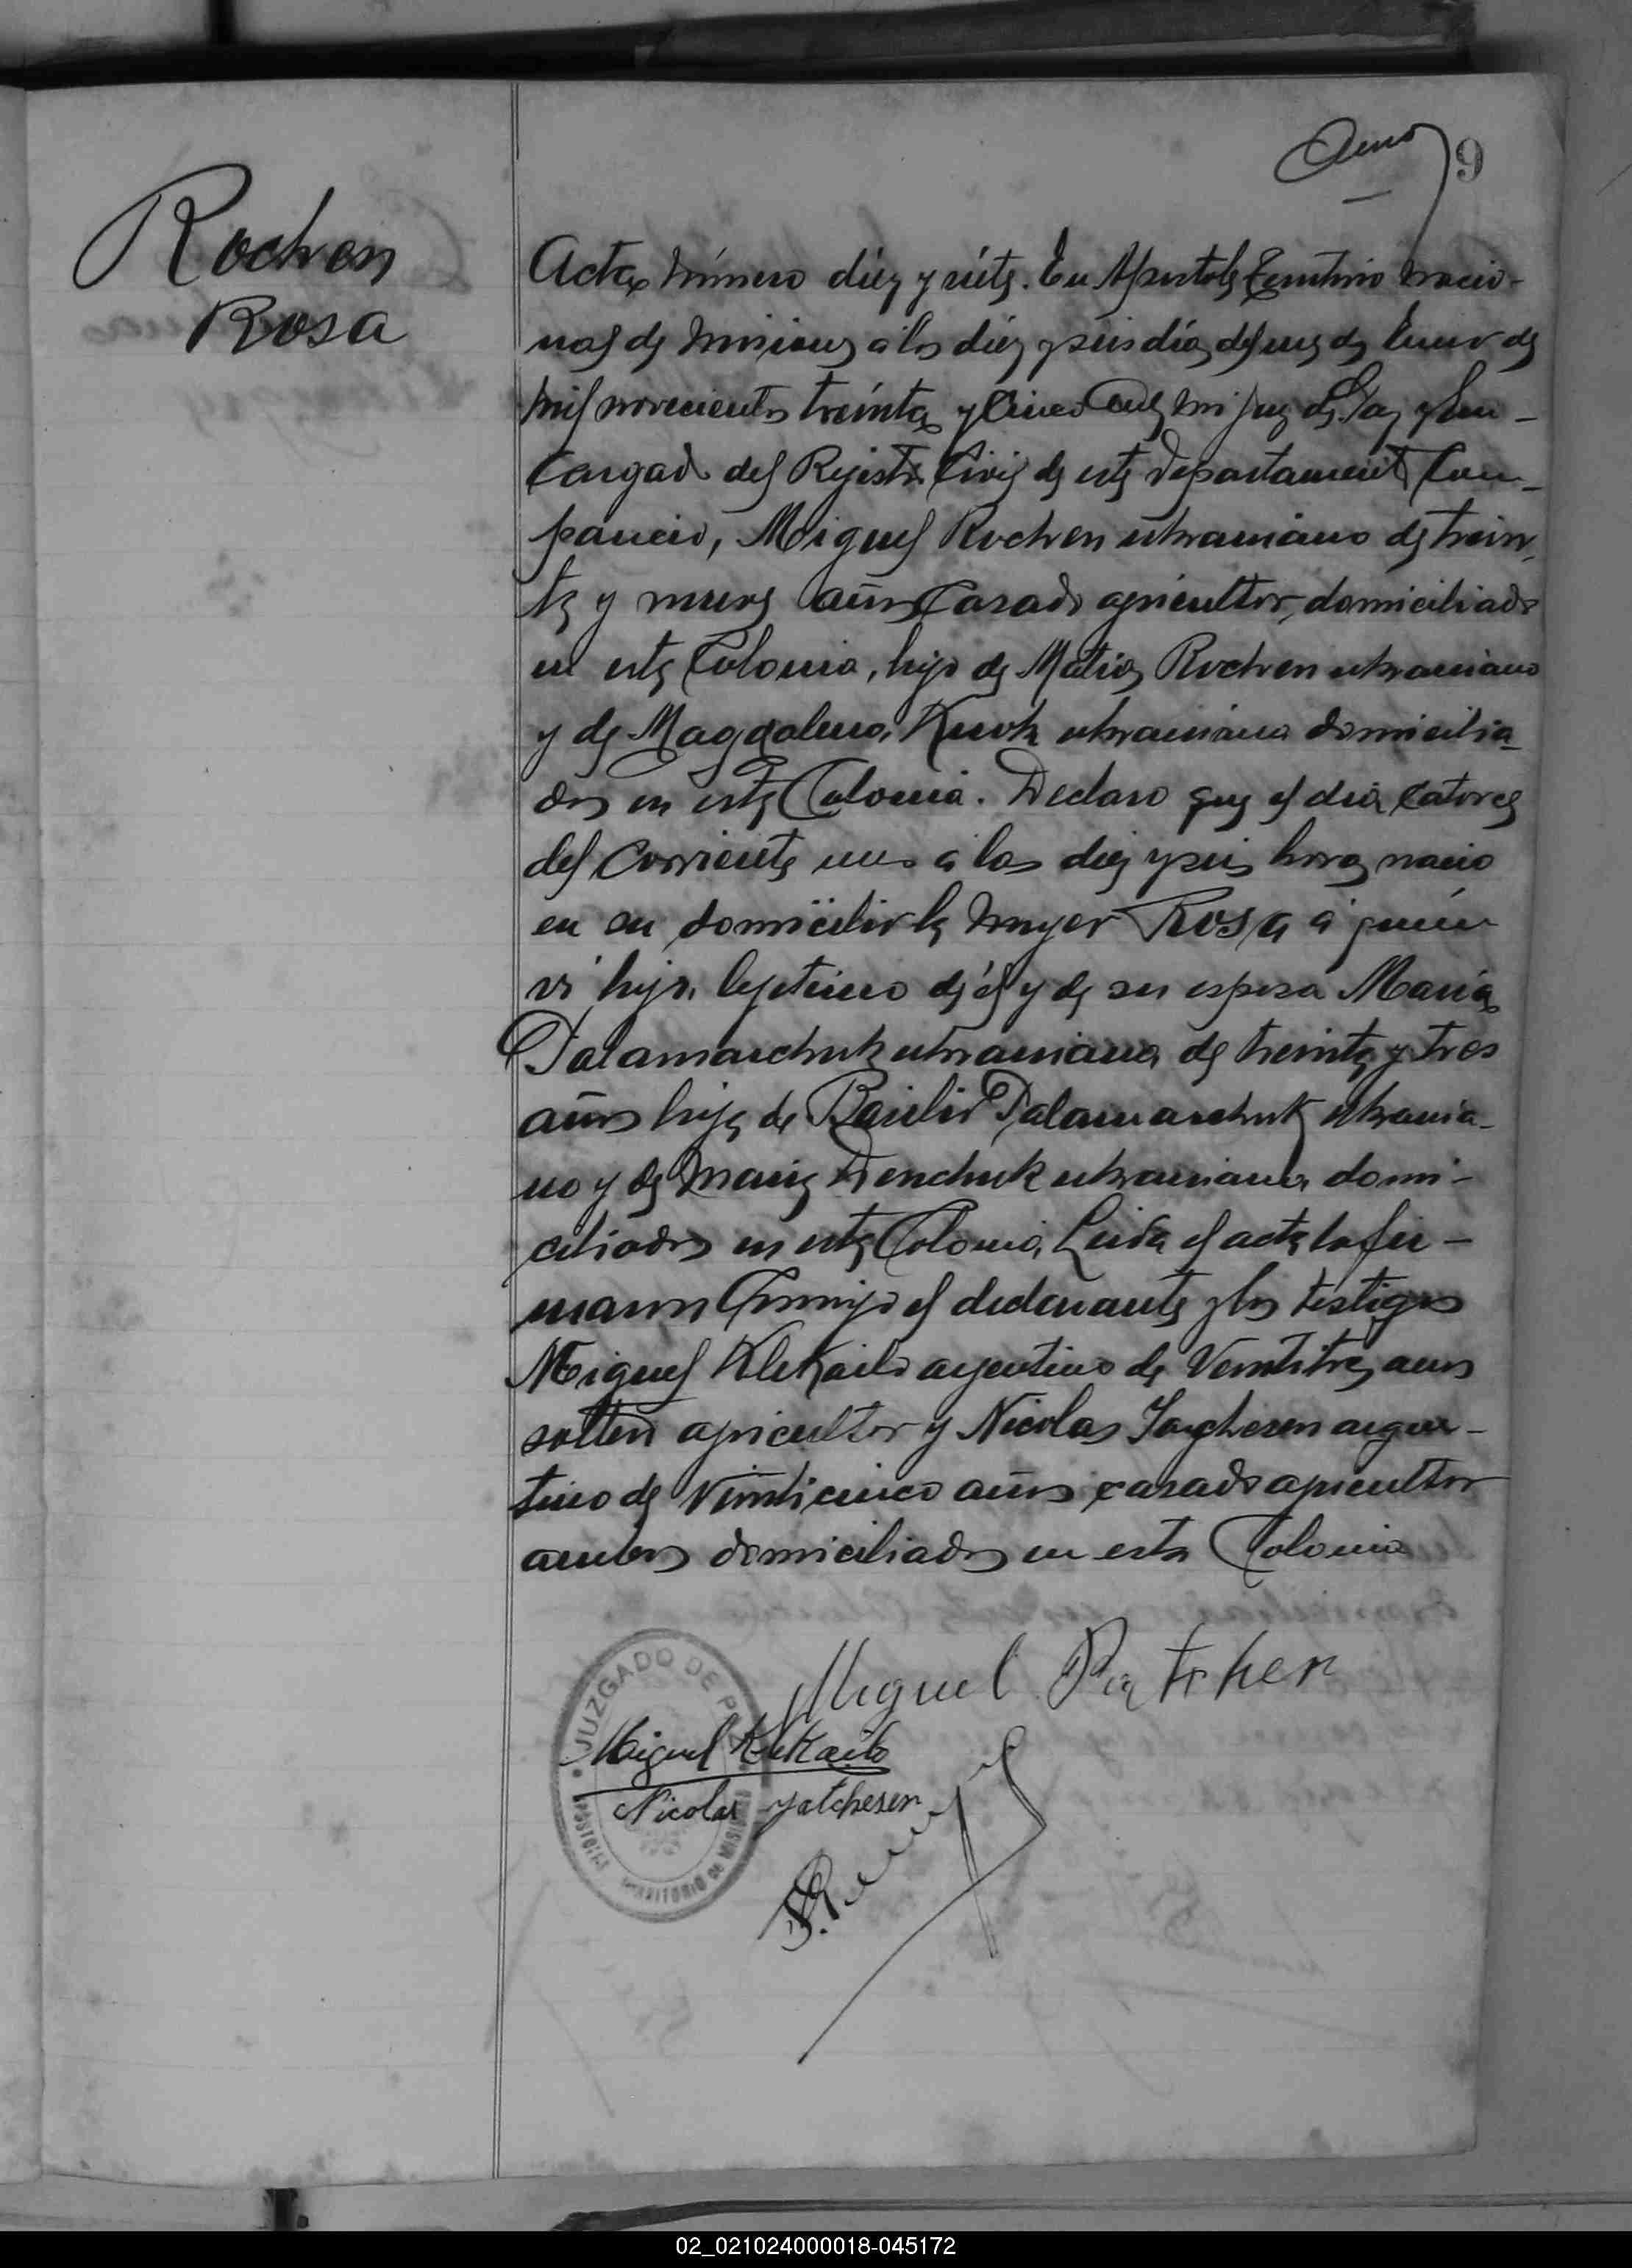 9
Rochen
Rosa
Acta número diez y siete. En Apostoles Territorio Nacio-
nal de Misiones a los diez y seis días del mes de Enero de
mil novecientos treinta y Cinco Ante mi Juez de Paz y En-
Cargado del Rejistro Civil de este Departamento Com-
parecio, Miguel Rochen ukraniano de trein-
ta y nueve años Casado agricultor, domiciliado
en esta Colonia, hijo de Matias Rochen ukraniano
y de Magdalena ukraniana domicilia-
dos en esta Colonia. Declaro que el dia catorce
del Corriente mes a las diez y seis horas nacio
en su domicilio la mujer Rosa a quien
vi hija lejitima de él y de su esposa Maria
Palamarchuk ukraniana de treinta y tres
años hija de Basilio Palamarchuk ukrania-
no y de Maria Denchuk ukraniana domi-
ciliados en esta Colonia, Leida el acta la fir-
maron Conmigo el declarante y los testigos
Miguel Klekailo argentino de Ventitres años
soltero agricultor y Nicolas argen-
tino de Vinticinco años casado agricultor
ambos domiciliados en esta Colonia
Miguel
Miguel Klekailo
Nicolas Yatchesen
JUZGADO DE PAZ
APOSTOLES TERRITORIO DE MISIONES
02_021024000018-045172